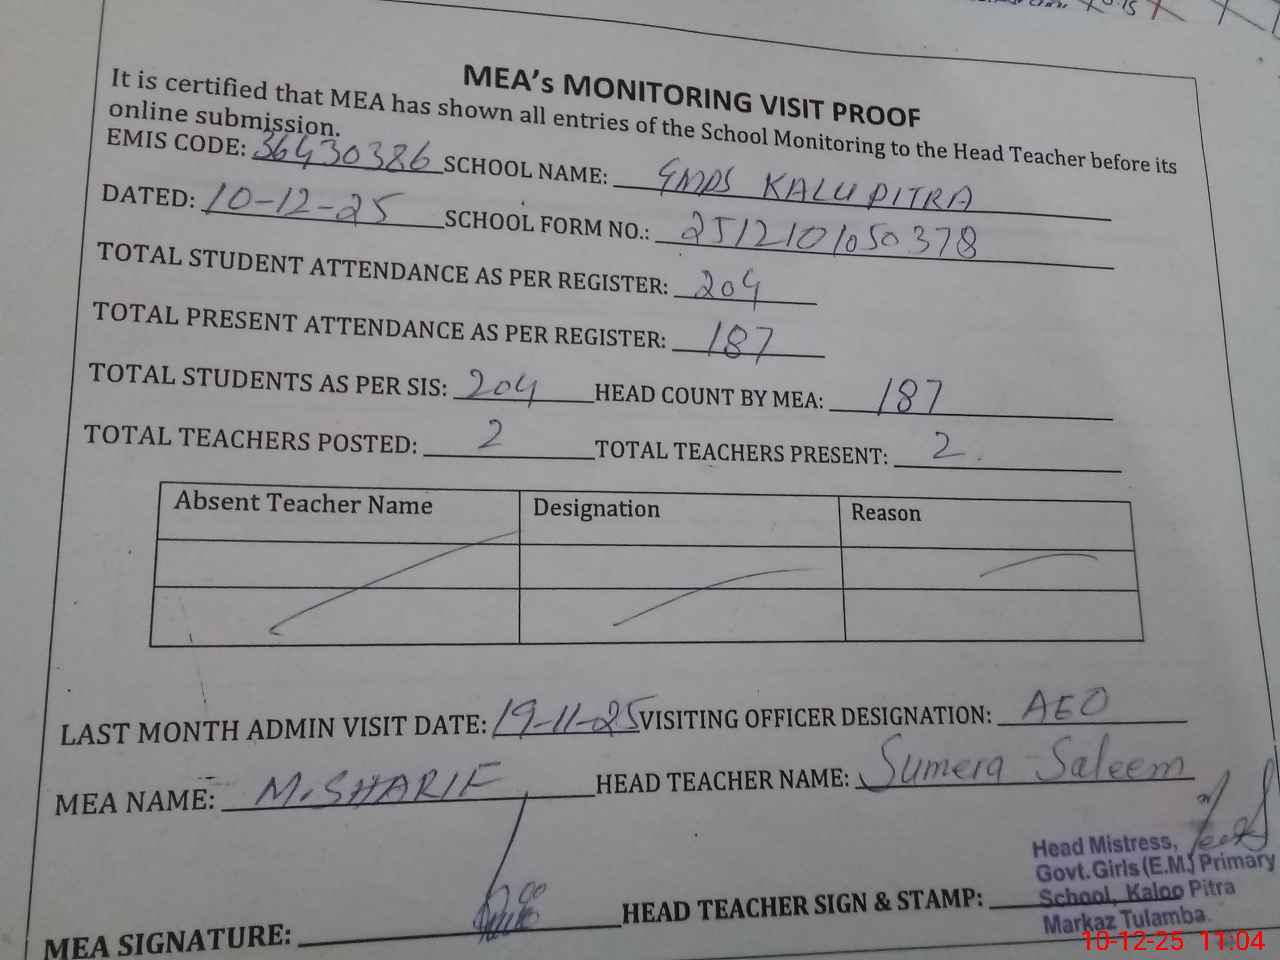 MEA's MONITORING VISIT PROOF
It is certified that MEA has shown all entries of the School Monitoring to the Head Teacher before its
online submission.
EMIS CODE: 36430386 SCHOOL NAME: GMPS KALU PITRA
DATED: 10-12-25 SCHOOL FORM NO.: 2512101050378
TOTAL STUDENT ATTENDANCE AS PER REGISTER: 204
TOTAL PRESENT ATTENDANCE AS PER REGISTER: 187
TOTAL STUDENTS AS PER SIS: 204 HEAD COUNT BY MEA: 187
TOTAL TEACHERS POSTED: 2 TOTAL TEACHERS PRESENT: 2.
Absent Teacher Name Designation Reason
LAST MONTH ADMIN VISIT DATE: 19-11-25 VISITING OFFICER DESIGNATION: AEO
MEA NAME: M.SHARIF HEAD TEACHER NAME: Sumera Saleem
MEA SIGNATURE: HEAD TEACHER SIGN & STAMP:
Head Mistress,
Govt.Girls (E.M.) Primary
School, Kaloo Pitra
Markaz Tulamba.
10-12-25 11:04